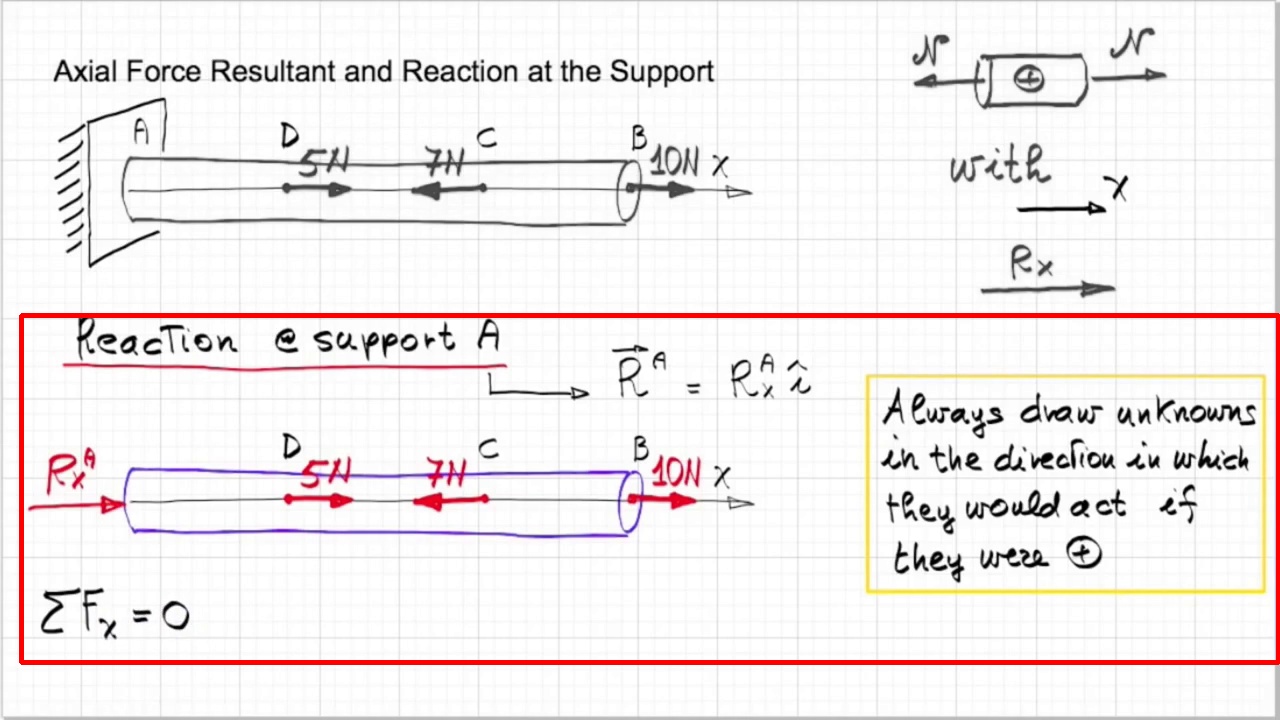 Axial Force Resultant and Reaction at the Support
N N
+
with
x
Rx
A D 5N 7N C B 10N x
Reaction @ support A
R^A = R_x^A î
R_x^A D 5N 7N C B 10N x
ΣF_x = 0
Always draw unknowns
in the direction in which
they would act if
they were ⊕